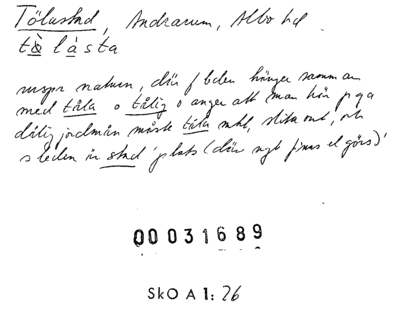 Tölastad, Andrarum, Albo hd.
tȁ̀ làsta
urspr naturn, där f leden hänger samman
med tåla o tålig o anger att man här p g a
dålig jordmån måste tåla mkt, slita ont, och
s leden är stad 'plats (där ngt finns el görs)'
00031689
SkO A 1: 26